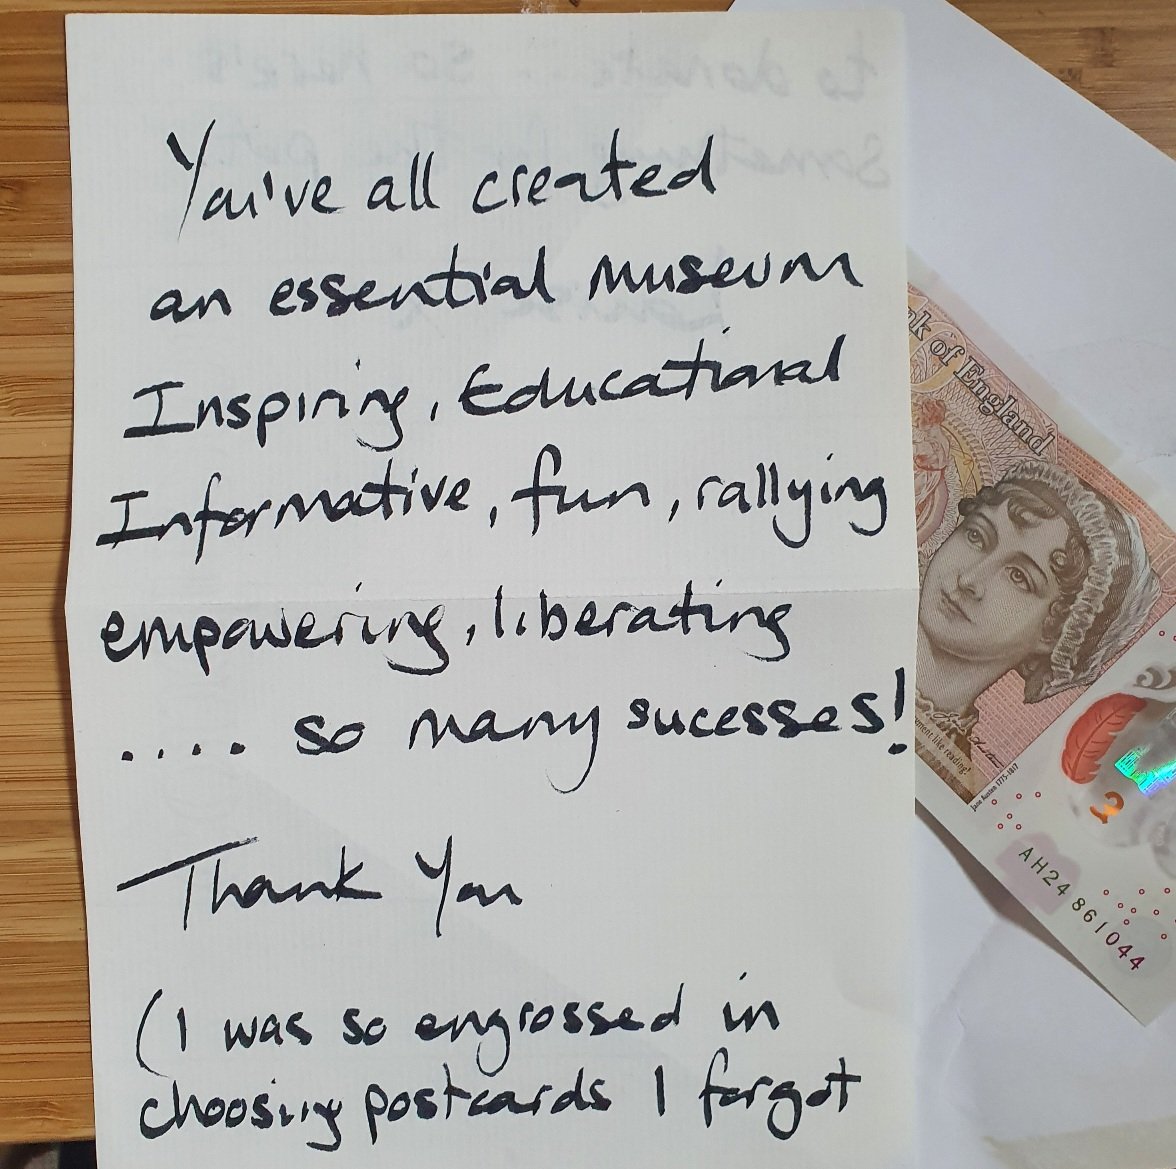 You've all created
an essential museum
Inspiring, Educational
Informative, fun, rallying
empowering, liberating
.... so many sucesses!
Thank You
(I was so engrossed in
choosing postcards I forgot
of England
Jane Austen 1775-1817
AH24 861044